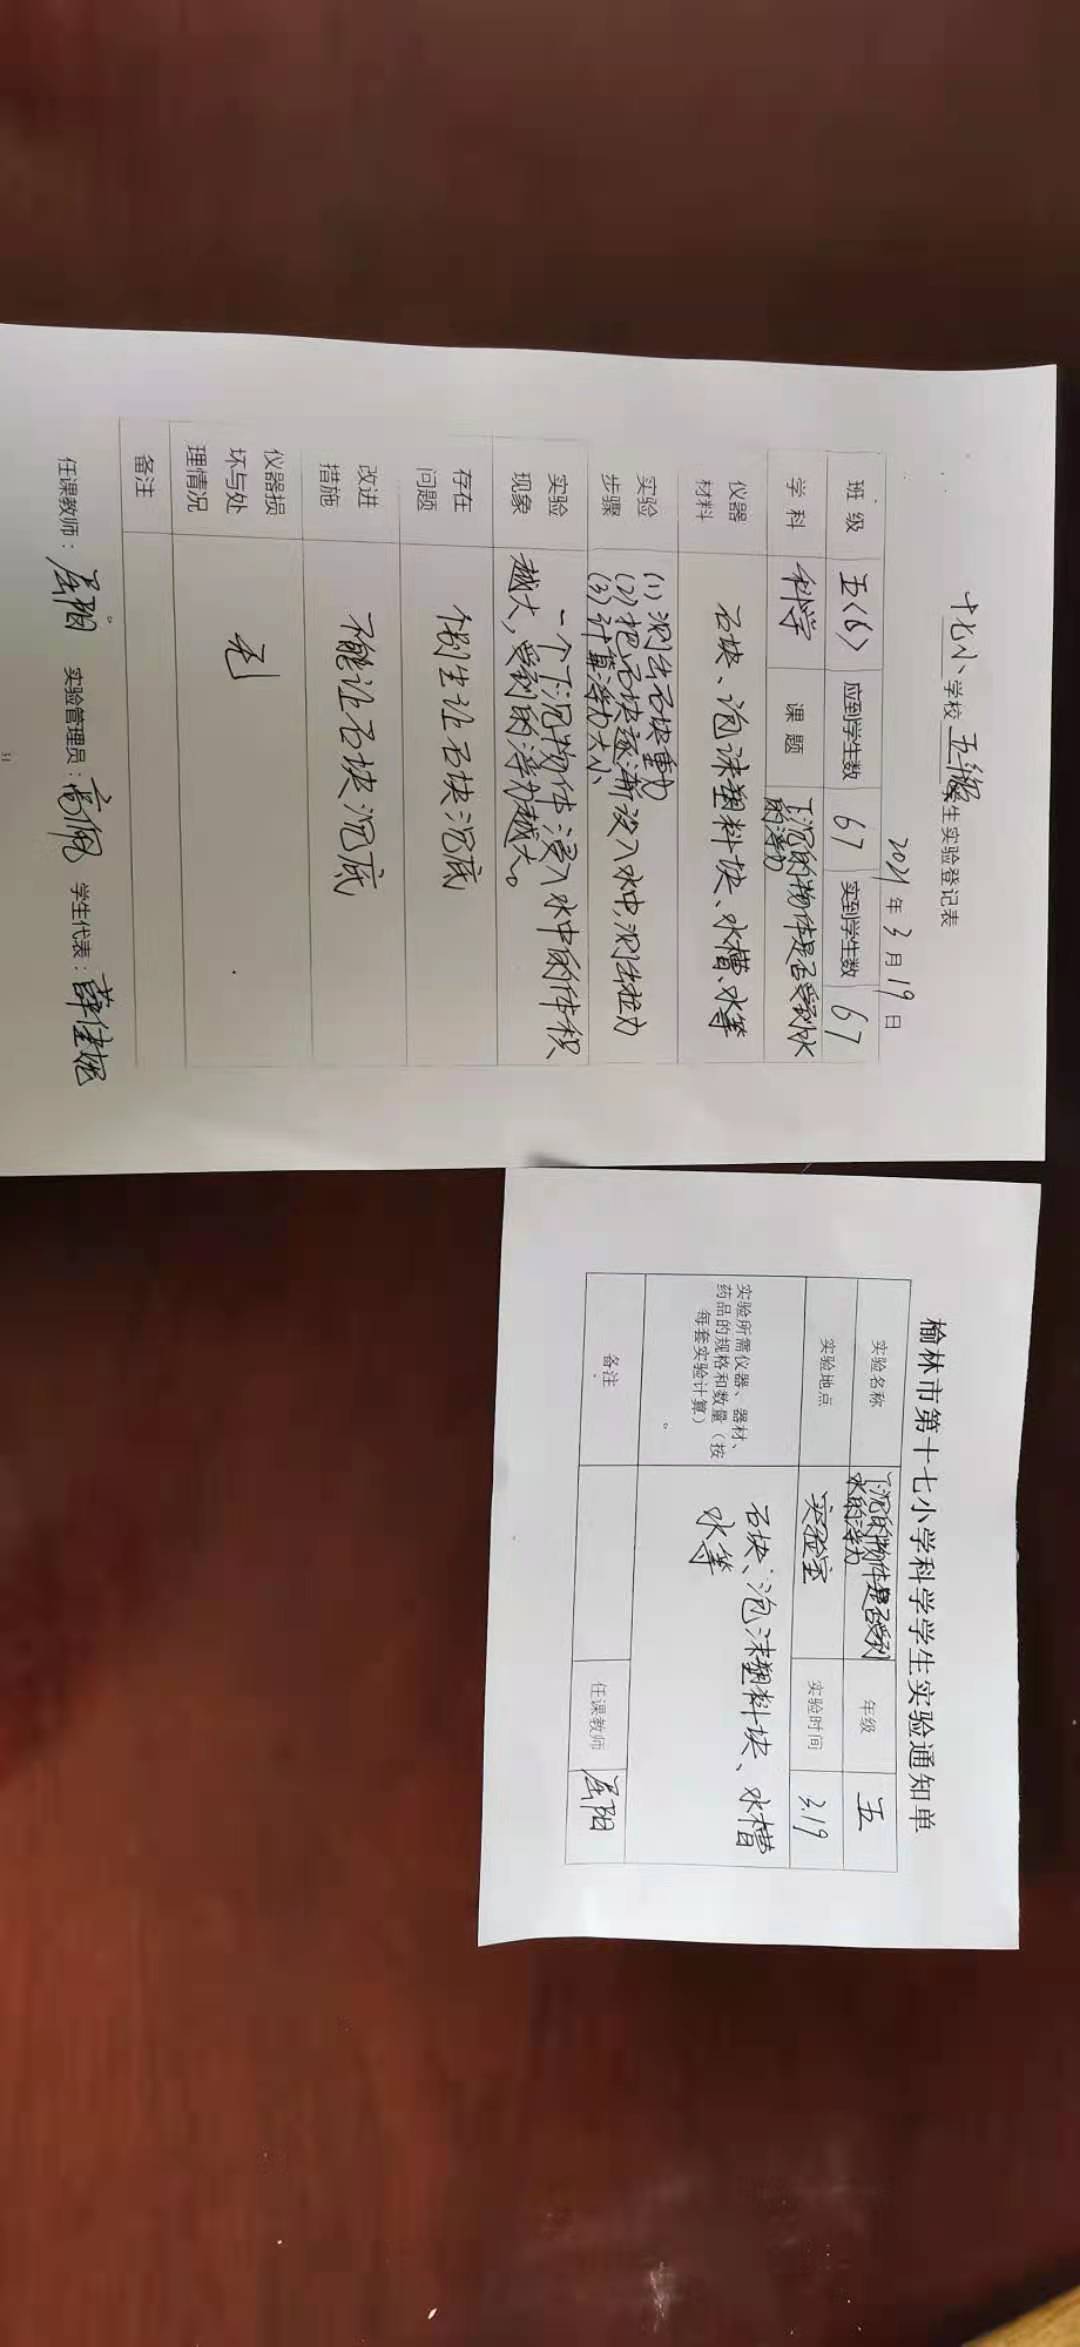 十七小学校五年级学生实验登记表
2021年3月19日
班级 五(6) 应到学生数 67 实到学生数 67
学科 科学 课题 下沉的物体是否受到水
的浮力
仪器
材料
石块、泡沫塑料块、水槽、水等
实验
步骤
(1)测出石块重力
(2)把石块逐渐设入水中,测出拉力
(3)计算浮力大小
实验
现象
一个下沉物体浸入水中的体积
越大,受到的浮力越大。
存在
问题
个别生让石块沉底
改进
措施
不能让石块沉底
仪器损
坏与处
理情况
无
备注
任课教师: 屈阳 实验管理员: 高佩 学生代表:
31
榆林市第十七小学科学学生实验通知单
实验名称 下沉的物体是否受到
水的浮力
年级 五
实验地点 实验室 实验时间 3.19
实验所需仪器、器材、
药品的规格和数量(按
每套实验计算)
石块、泡沫塑料块、水槽
水等
备注 任课教师 屈阳